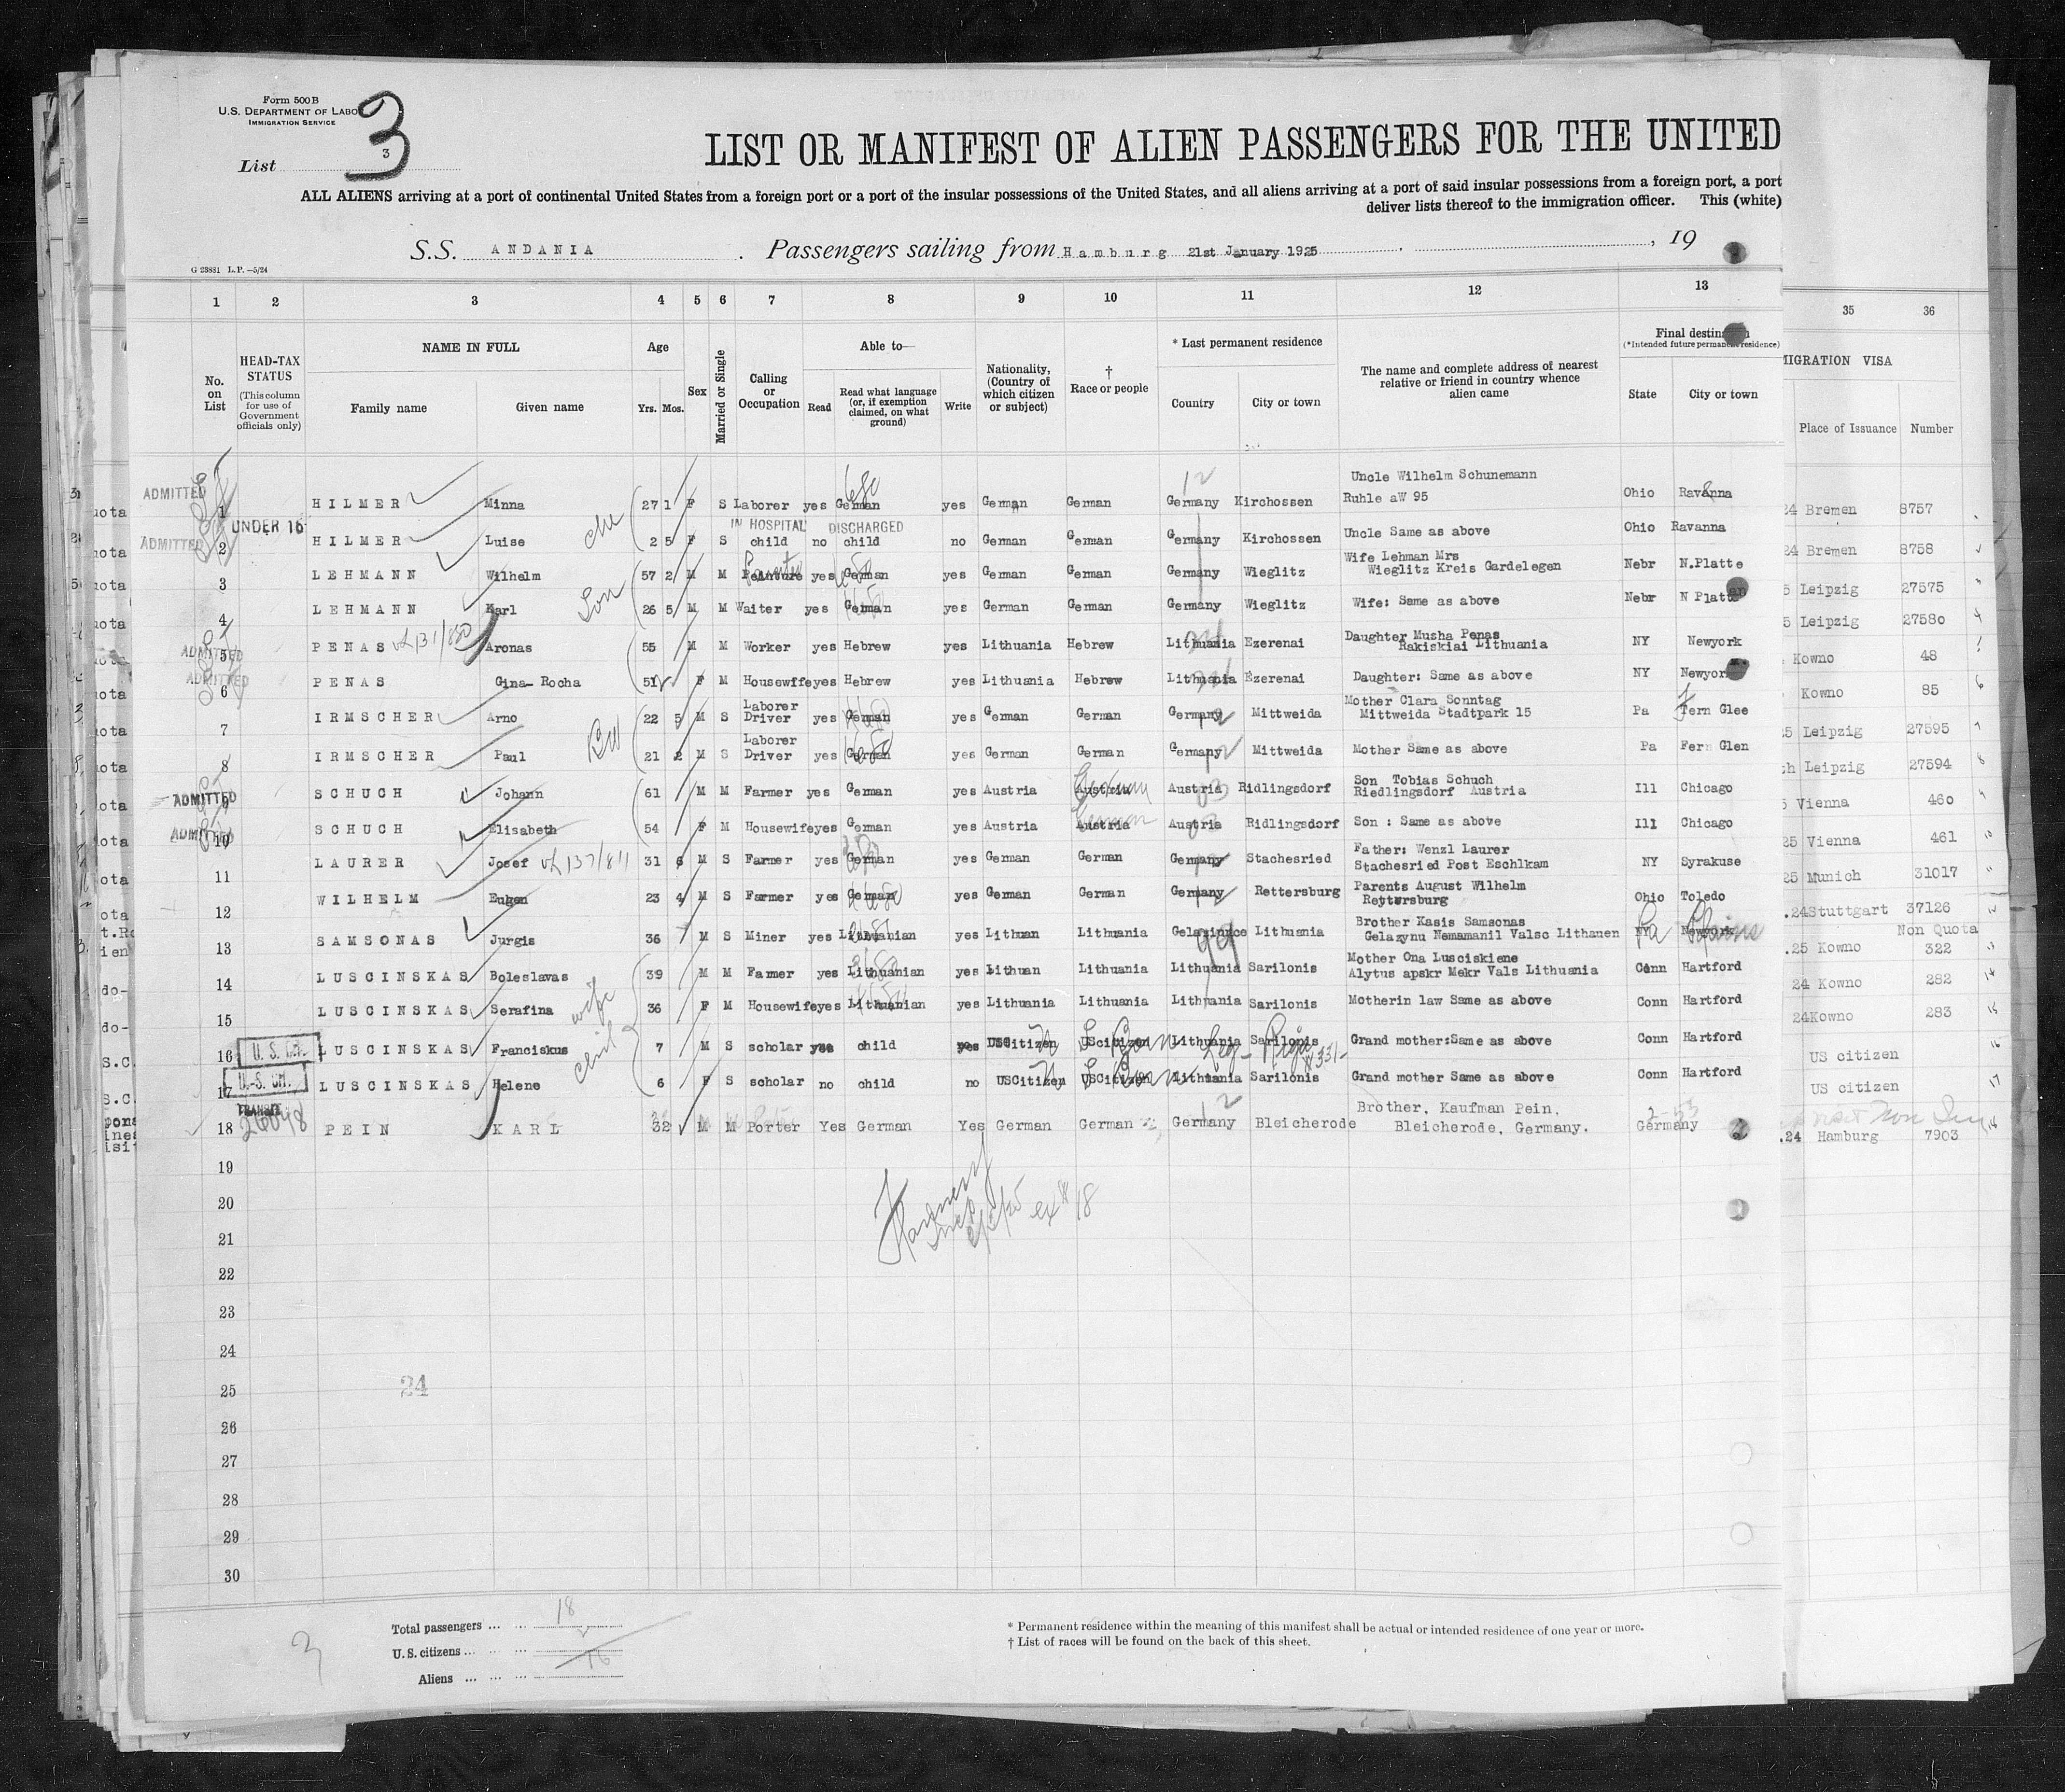 Form 500 B
U.S. DEPARTMENT OF LABOR
IMMIGRATION SERVICE
3
List 3
LIST OR MANIFEST OF ALIEN PASSENGERS FOR THE UNITED
ALL ALIENS arriving at a port of continental United States from a foreign port or a port of the insular possessions of the United States, and all aliens arriving at a port of said insular possessions from a foreign port, a port
deliver lists thereof to the immigration officer. This (white)
S.S. ANDANIA . Passengers sailing from Hamburg 21st January 1925 , 19
G 23881 L.P.—5/24
1 2 3 4 5 6 7 8 9 10 11 12 13 35 36
No. on List
HEAD-TAX STATUS (This column for use of Government officials only)
NAME IN FULL Family name Given name
Age Yrs. Mos.
Sex
Married or Single
Calling or Occupation
Able to— Read Read what language (or, if exemption claimed, on what ground) Write
Nationality, (Country of which citizen or subject)
† Race or people
* Last permanent residence Country City or town
The name and complete address of nearest relative or friend in country whence alien came
Final destination (*Intended future permanent residence) State City or town
MIGRATION VISA Place of Issuance Number
ADMITTED 1 HILMER Minna 27 1 F S Laborer yes German yes German German Germany Kirchossen Uncle Wilhelm Schunemann Ruhle aW 95 Ohio Ravanna 24 Bremen 8757
UNDER 16 IN HOSPITAL DISCHARGED
ADMITTED 2 HILMER Luise che 2 5 F S child no child no German German Germany Kirchossen Uncle Same as above Ohio Ravanna 24 Bremen 8758
3 LEHMANN Wilhelm 57 2 M M yes German yes German German Germany Wieglitz Wife Lehman Mrs Wieglitz Kreis Gardelegen Nebr N.Platte 5 Leipzig 27575
4 LEHMANN Karl Son 26 5 M M Waiter yes German yes German German Germany Wieglitz Wife: Same as above Nebr N Platte 5 Leipzig 27580
ADMITTED 5 PENAS Aronas 55 M M Worker yes Hebrew yes Lithuania Hebrew Lithuania Ezerenai Daughter Musha Penas Rakiskiai Lithuania NY Newyork Kowno 48
ADMITTED 6 PENAS Gina-Rocha 51 F M Housewife yes Hebrew yes Lithuania Hebrew Lithuania Ezerenai Daughter: Same as above NY Newyork Kowno 85
7 IRMSCHER Arno 22 5 M S Laborer Driver yes German yes German German Germany Mittweida Mother Clara Sonntag Mittweida Stadtpark 15 Pa Fern Glee 25 Leipzig 27595
8 IRMSCHER Paul 21 2 M S Laborer Driver yes German yes German German Germany Mittweida Mother Same as above Pa Fern Glen Leipzig 27594
ADMITTED 9 SCHUCH Johann 61 M M Farmer yes German yes Austria Austria German Austria Ridlingsdorf Son Tobias Schuch Riedlingsdorf Austria Ill Chicago 5 Vienna 460
ADMITTED 10 SCHUCH Elisabeth 54 F M Housewife yes German yes Austria Austria German Austria Ridlingsdorf Son : Same as above Ill Chicago 25 Vienna 461
11 LAURER Josef 31 6 M S Farmer yes German yes German German Germany Stachesried Father: Wenzl Laurer Stachesried Post Eschlkam NY Syrakuse 25 Munich 31017
12 WILHELM Eugen 23 4 M S Farmer yes German yes German German Germany Rettersburg Parents August Wilhelm Rettersburg Ohio Toledo .24 Stuttgart 37126
13 SAMSONAS Jurgis 36 M S Miner yes Lithuanian yes Lithuan Lithuania Lithuania Brother Kasis Samsonas Gelazynu Nemamanil Valsc Lithauen Pa NY Newyork Non Quota .25 Kowno 322
14 LUSCINSKAS Boleslavas 39 M M Farmer yes Lithuanian yes Lithuan Lithuania Lithuania Sarilonis Mother Ona Lusciskiene Alytus apskr Mekr Vals Lithuania Conn Hartford 24 Kowno 282
15 LUSCINSKAS Serafina wife 36 F M Housewife yes Lithuanian yes Lithuania Lithuania Lithuania Sarilonis Motherin law Same as above Conn Hartford 24Kowno 283
U.S. CIT. 16 LUSCINSKAS Franciskus 7 M S scholar yes child yes USCitizen UScitizen Lithuania Sarilonis Grand mother:Same as above Conn Hartford US citizen
U.S. CIT. 17 LUSCINSKAS Helene 6 F S scholar no child no USCitizen USCitizen Lithuania Sarilonis Grand mother Same as above Conn Hartford US citizen
TRANSIT
18 PEIN KARL 32 M M Porter Yes German Yes German German Germany Bleicherode Brother, Kaufman Pein, Bleicherode, Germany. Germany .24 Hamburg 7903
19
20
21
22
23
24
24
25
26
27
28
29
30
Total passengers 18
U.S. citizens 2
Aliens 16
* Permanent residence within the meaning of this manifest shall be actual or intended residence of one year or more.
† List of races will be found on the back of this sheet.